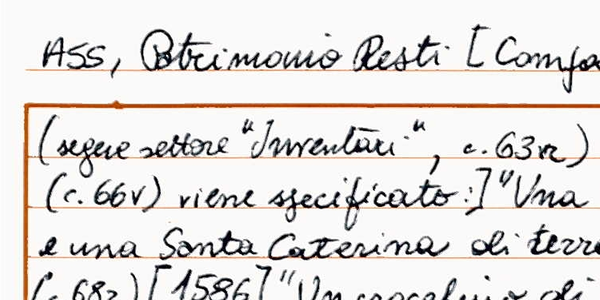 ASS, Patrimonio Resti [Compa
(segue settore "Inventari", c. 63vr)
(c. 66v) viene specificato:] "Una
e una Santa Caterina di terra
(c. 68r) [1586] "Un crocefisso di